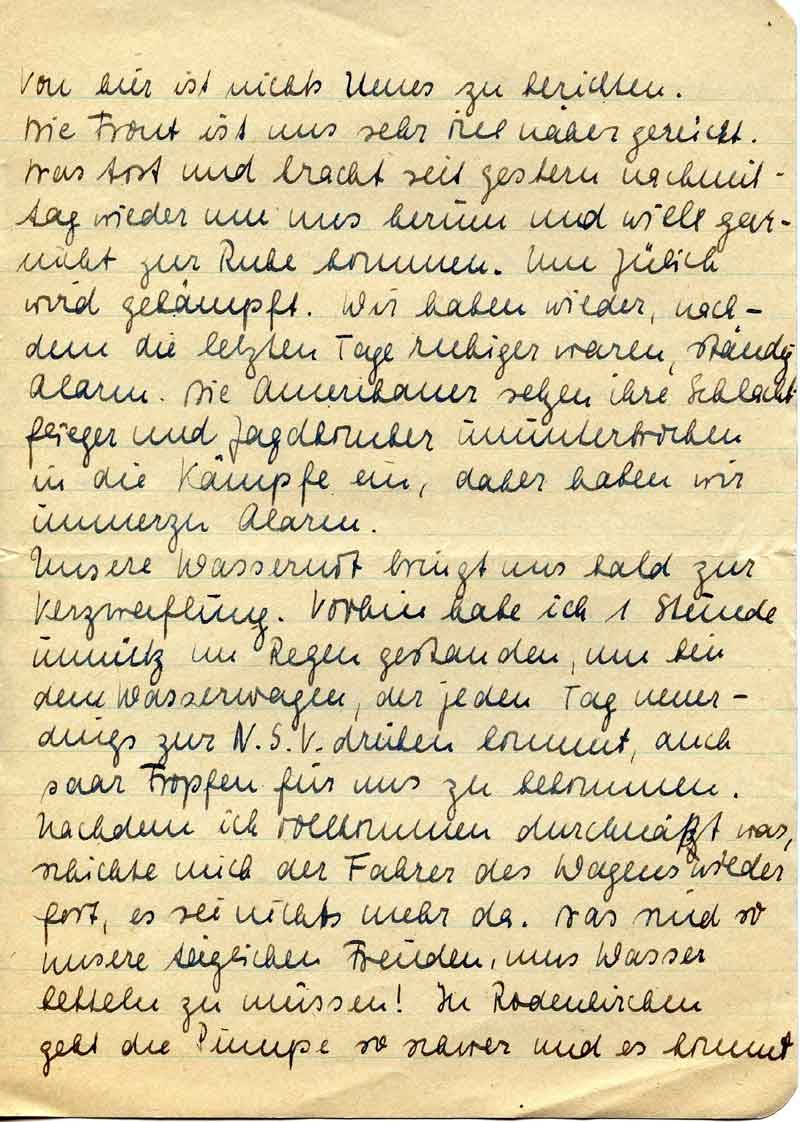 Von hier ist nichts Neues zu berichten.
Die Front ist uns sehr viel näher gerückt.
Das tost und kracht seit gestern nachmit-
tag wieder um uns herum und will gar-
nicht zur Ruhe kommen. Um Jülich
wird gekämpft. Wir haben wieder, nach-
dem die letzten Tage ruhiger waren, ständig
Alarm. Die Amerikaner setzen ihre Schlacht-
flieger und Jagdbomber ununterbrochen
in die Kämpfe ein, daher haben wir
immerzu Alarm.
Unsere Wassernot bringt uns bald zur
Verzweiflung. Vorhin habe ich 1 Stunde
unnütz im Regen gestanden, um bei
dem Wasserwagen, der jeden Tag neuer-
dings zur N.S.V. drüben kommt, auch
paar Tropfen für uns zu bekommen.
Nachdem ich vollkommen durchnäßt war,
schickte mich der Fahrer des Wagens wieder
fort, es sei nichts mehr da. Das sind so
unsere täglichen Freuden, ums Wasser
betteln zu müssen! In Rodenkirchen
geht die Pumpe so schwer und es kommt